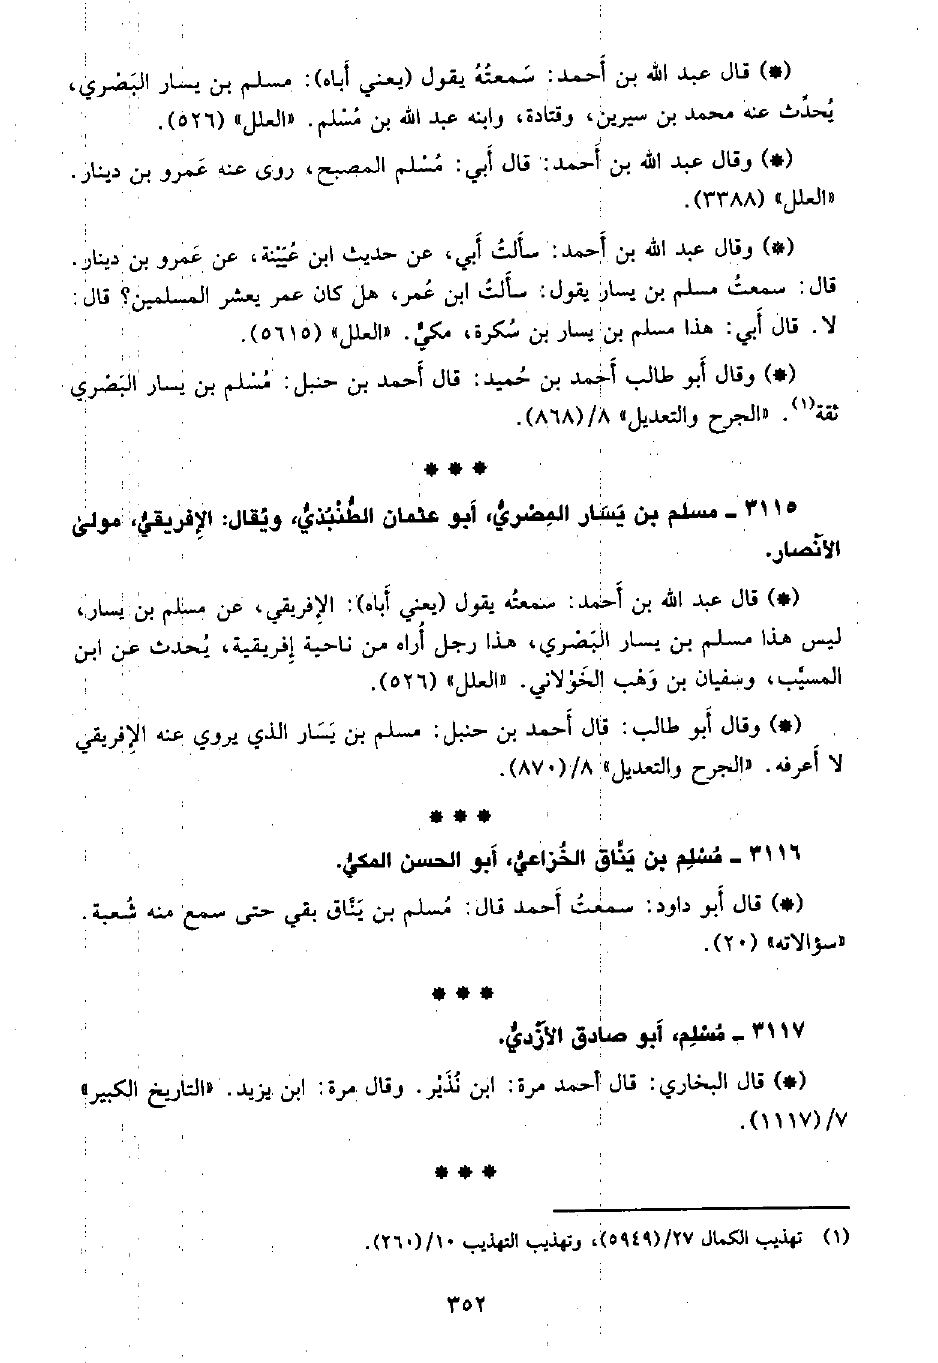 (*) قال عبد الله بن أَحمد: سَمعتُهُ يقول (يعني أَباه): مسلم بن يسار البَصْري،
يُحدِّث عنه محمد بن سيرين، وقتادة، وابنه عبد الله بن مُسْلم. «العلل» (٥٢٦).
(*) وقال عبد الله بن أَحمد: قال أَبي: مُسْلم المصبح، روى عنه عَمرو بن دينار.
«العلل» (٣٣٨٨).
(*) وقال عبد الله بن أَحمد: سأَلتُ أَبي، عن حديث ابن عُيَيْنة، عن عَمرو بن دينار.
قال: سمعتُ مسلم بن يسار يقول: سأَلتُ ابن عُمر، هل كان عمر يعشر المسلمين؟ قال:
لا. قال أَبي: هذا مسلم بن يسار بن سُكرة، مكيٌّ. «العلل» (٥٦١٥).
(*) وقال أَبو طالب أَحمد بن حُميد: قال أَحمد بن حنبل: مُسْلم بن يسار البَصْري
ثقة(١). «الجرح والتعديل» ٨/(٨٦٨).
* * *
٣١١٥ ـ مسلم بن يَسَار المِصْريُّ، أَبو عثمان الطُّنْبُذيُّ، ويُقال: الإِفريقيُّ، مولىٰ
الأَنْصار.
(*) قال عبد الله بن أَحمد: سمعتُه يقول (يعني أَباه): الإِفريقي، عن مسلم بن يسار،
ليس هذا مسلم بن يسار البَصْري، هذا رجل أُراه من ناحية إِفريقية، يُحدث عن ابن
المسيَّب، وسفيان بن وَهْب الخَوْلاني. «العلل» (٥٢٦).
(*) وقال أَبو طالب: قال أَحمد بن حنبل: مسلم بن يَسَار الذي يروي عنه الإِفريقي
لا أَعرفه. «الجرح والتعديل» ٨/(٨٧٠).
* * *
٣١١٦ ـ مُسْلِم بن يَنَّاق الخُزاعيُّ، أَبو الحسن المكيُّ.
(*) قال أَبو داود: سمعتُ أَحمد قال: مُسلم بن يَنَّاق بقي حتى سمع منه شُعبة.
«سؤالاته» (٢٠).
* * *
٣١١٧ ـ مُسْلِم، أَبو صادق الأَزْديُّ.
(*) قال البخاري: قال أحمد مرة: ابن نُذَيْر. وقال مرة: ابن يزيد. «التاريخ الكبير»
٧/(١١١٧).
* * *
(١) تهذيب الكمال ٢٧/(٥٩٤٩)، وتهذيب التهذيب ١٠/(٢٦٠).
٣٥٢